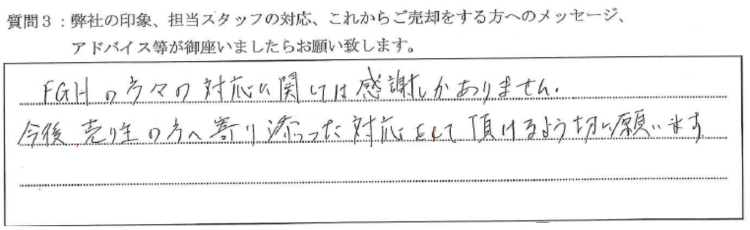 質問3：弊社の印象、担当スタッフの対応、これからご売却をする方へのメッセージ、
アドバイス等が御座いましたらお願い致します。
FGHの方々の対応に関しては感謝しかありません。
今後売り主の方へ寄り添った対応をして頂けるよう切に願います